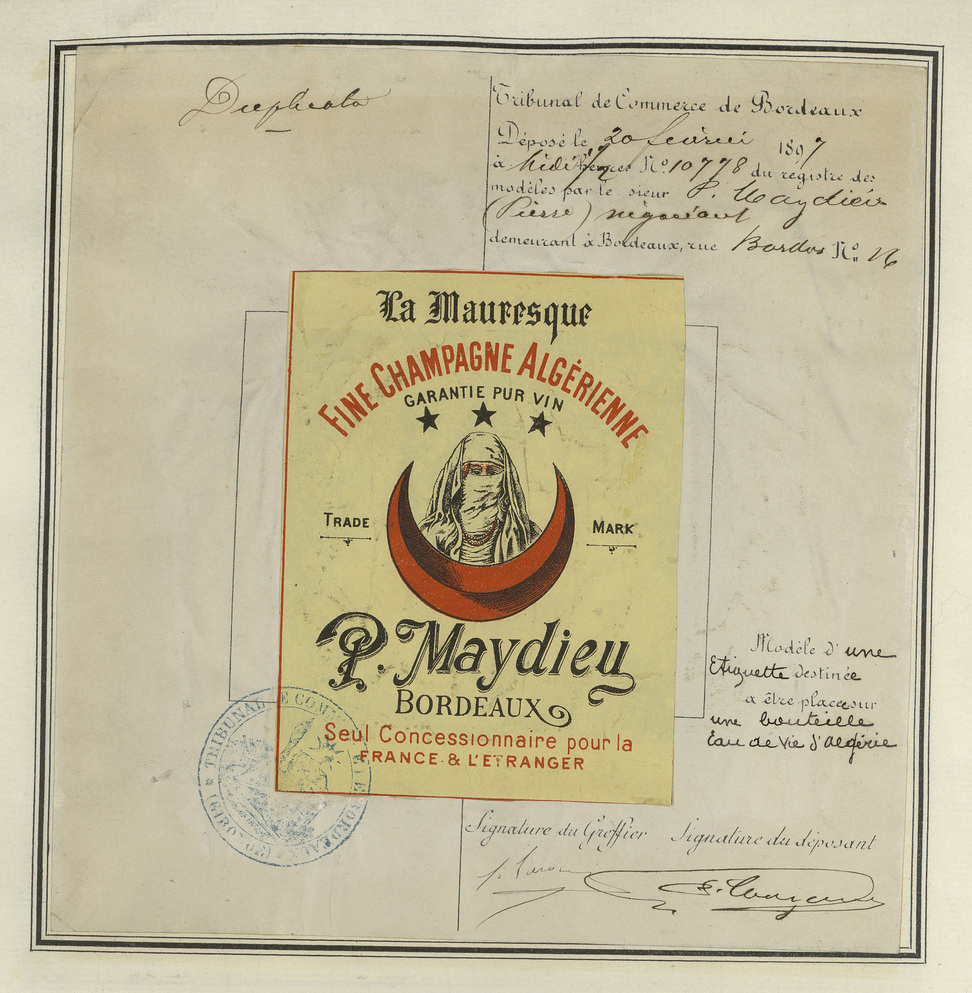 Duplicata
Tribunal de Commerce de Bordeaux
Déposé le 20 février 1897
à Midi ½ heures No. 10778 du régistre des
modèles par le sieur P. Maydieu
(Pierre) négociant
demeurant à Bordeaux, rue No. 26
La Mauresque
FINE CHAMPAGNE ALGÉRIENNE
GARANTIE PUR VIN
TRADE MARK
P. Maydieu
BORDEAUX
Seul Concessionnaire pour la
FRANCE & L'ETRANGER
Modèle d'une
Etiquette destinée
a être placée sur
une bouteille
Eau de Vie d'Algérie
TRIBUNAL DE COMMERCE DE BORDEAUX
(GIRONDE)
Signature du Greffier Signature du déposant